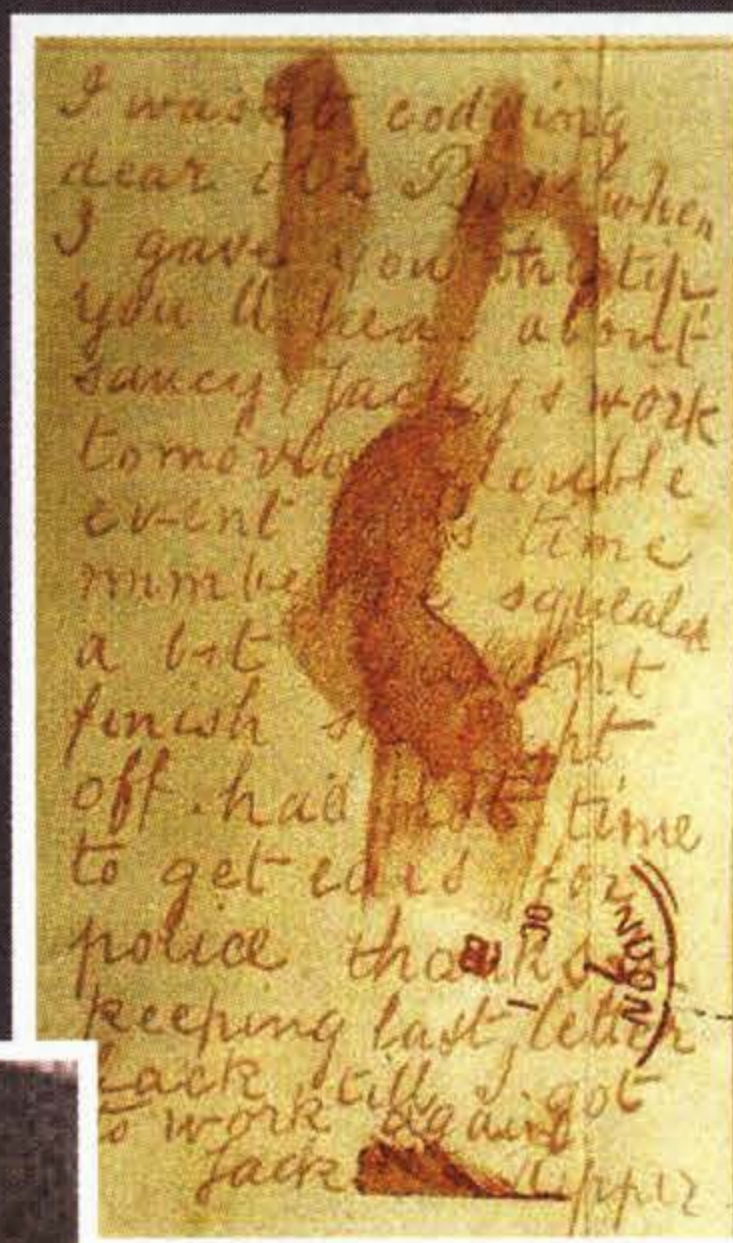 I was not codding
dear old Boss when
I gave you the tip
you'll hear about
saucy Jackys work
tomorrow double
event this time
number one squealed
a bit couldnt
finish straight
off. had not time
to get ears for
police thanks for
keeping last letter
back till I got
to work again
Jack the Ripper
LONDON
OC